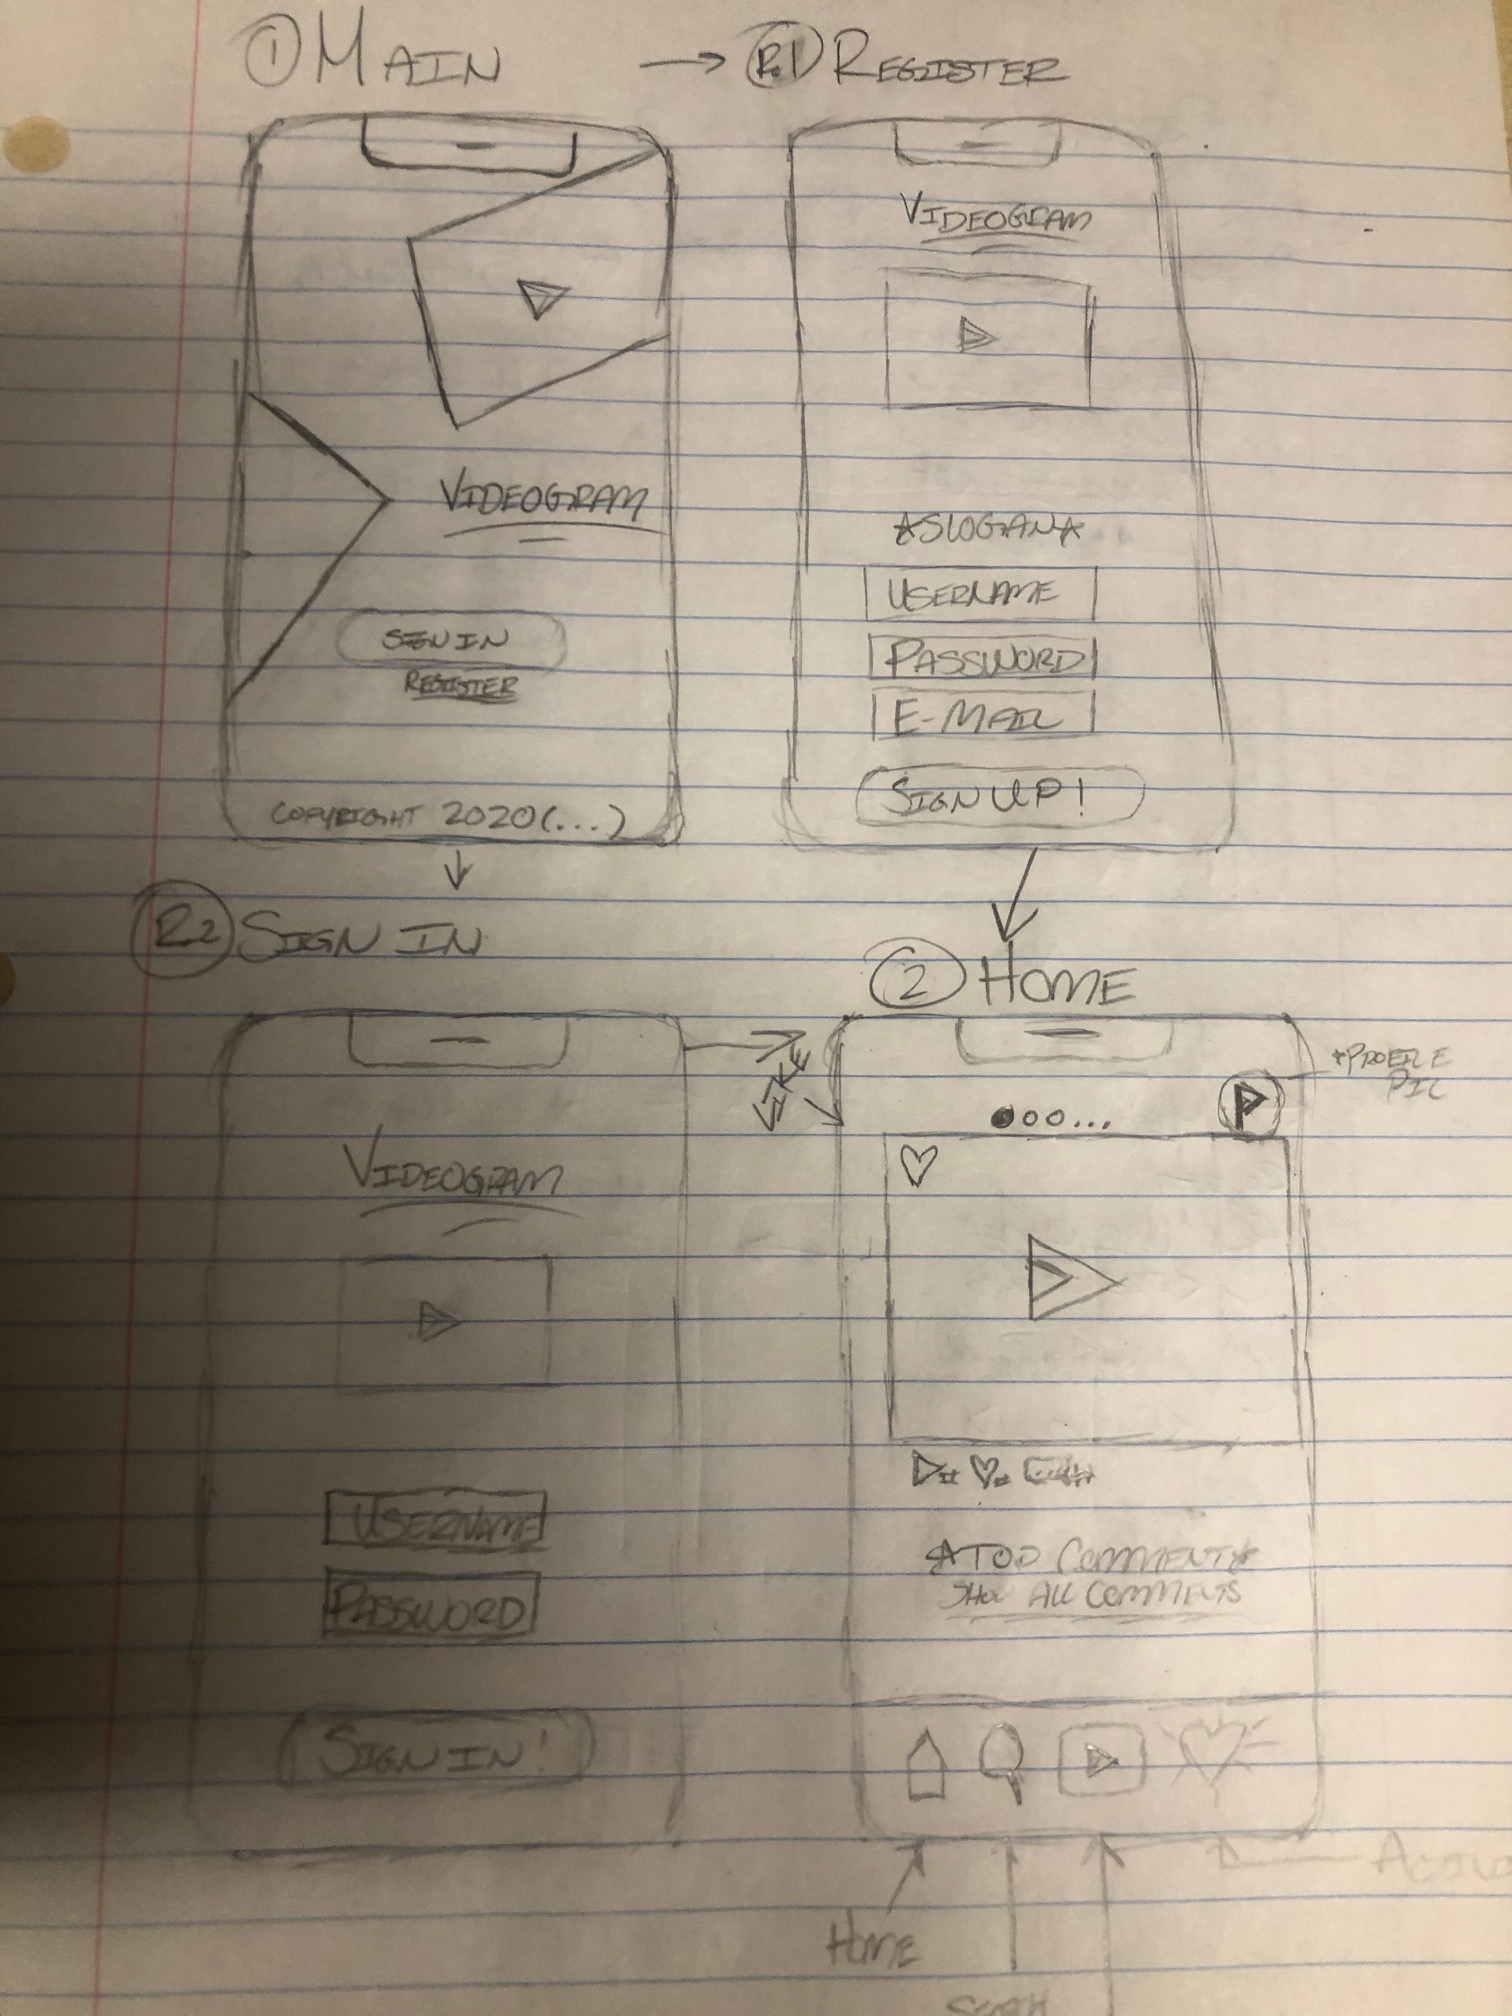 ① MAIN
→ R.1 REGISTER
VIDEOGRAM
SIGN IN
REGISTER
COPYRIGHT 2020 (...)
VIDEOGRAM
*SLOGAN*
USERNAME
PASSWORD
E-MAIL
SIGN UP!
R2 SIGN IN
VIDEOGRAM
USERNAME
PASSWORD
SIGN IN!
② HOME
LIKE
*PROFILE
PIC
P
*TOP COMMENT*
SHOW ALL COMMENTS
HOME